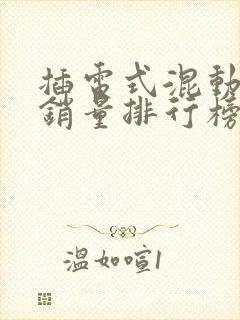 插電式混動
銷量排行榜
溫如喧1